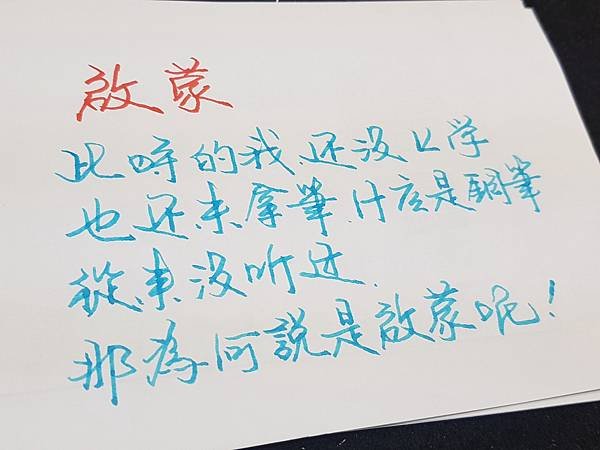 啟蒙
此時的我,还没上学
也还未拿筆,什麼是鋼筆
從來没听过.
那為何說是啟蒙呢!